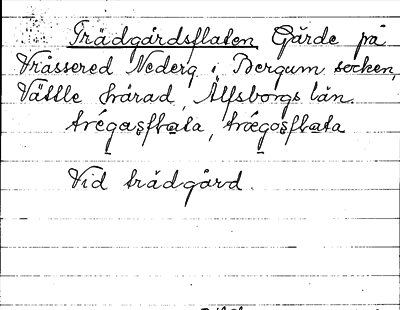 Trädgårdsflaten Gärde på
Vråssered Nederg i Bergum socken,
Vättle härad, Älfsborgs län.
trégas̱fḻata, træ̱gos̱fḻata
Vid trädgård.